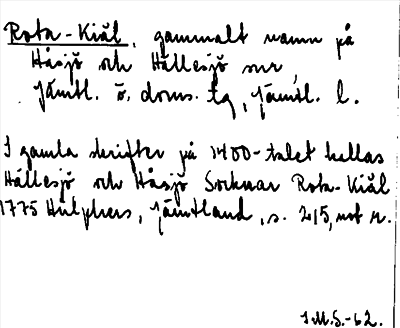 Rota-Kiäl, gammalt namn på
Håsjö och Hällesjö snr,
Jämtl. ö. doms. tg, Jämtl. l.
I gamla skrifter på 1400-talet kallas
Hällesjö och Håsjö Socknar Rota-Kiäl
1775 Hülphers, Jämtland, s. 215, not r.
J.M.S.-62.